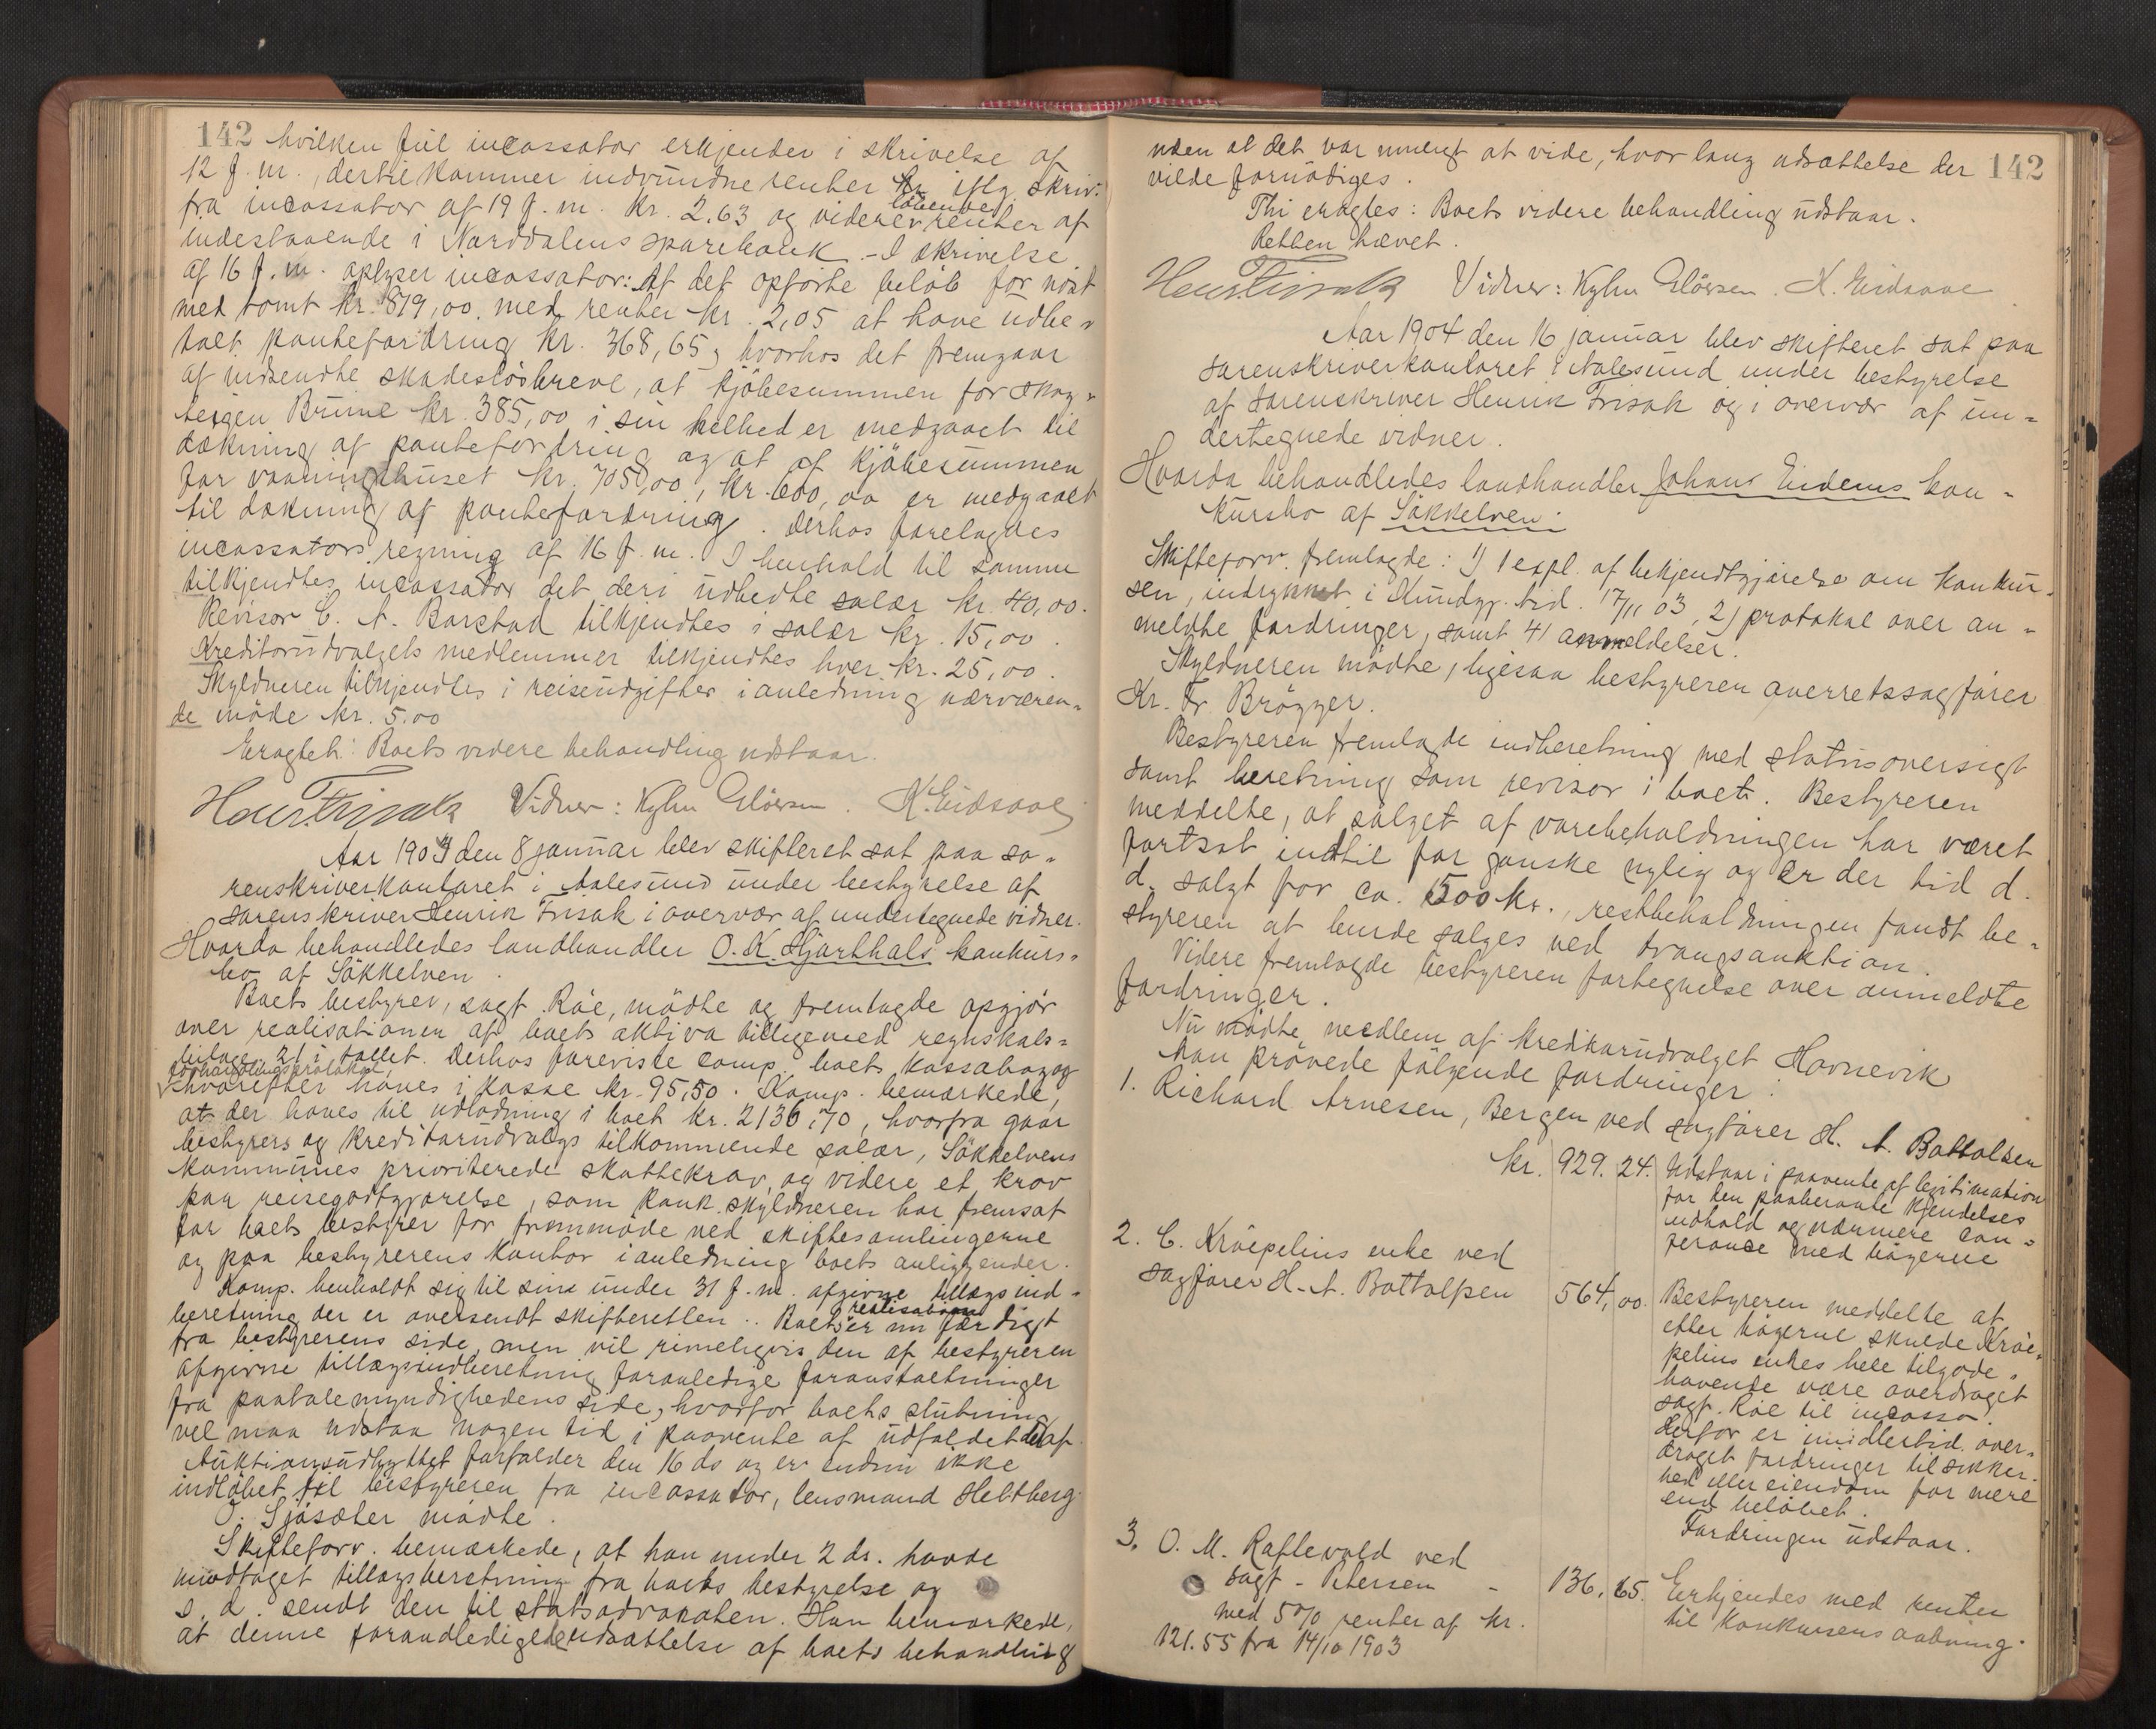 142 hvilken feil incassator erkjender i skrivelse af
12 f. m., dertil kommer indvundne renter iflg. skriv.
fra incassator af 19 f. m. kr. 2.63 og videre löbende renter af
indestaaende i Norddalens sparebank. - I skrivelse
af 16 f. m. oplyser incassator: At det opförte belöb for
med tomt kr. 819,00 med renter kr. 2,05 at have udbe-
talt pantefordring kr. 368,65, hvorhos det fremgaar
af indsendte skadeslösbreve, at kjöbesummen for skog-
teigen Brune kr. 385,00 i sin helhed er medgaaet til
dækning af pantefordring og at af kjöbesummen
for vaaningshuset kr. 7050,00, kr. 600,00 er medgaaet
til dækning af pantefordring. Derhos forelagdes
incassators regning af 16 f. m. I henhold til samme
tilkjendtes incassator det deri udbedte salær kr. 40,00.
Revisor C. A. Barstad tilkjendtes i salær kr. 15,00.
Kreditorudvalgets medlemmer tilkjendtes hver kr. 25,00.
Skyldneren tilkjendtes i reiseudgifter i anledning nærværen-
de möde kr. 5.00
Eragtet: Boets videre behandling udstaar.
Henr. Frisak Vidner: Kylm Elövsen. K. Eidsaae
Aar 1904 den 8 januar blev skifteret sat paa so-
renskriverkontoret i Aalesund under bestyrelse af
sorenskriver Henrik Frisak i overvær af undertegnede vidner.
Hvorda behandledes landhandler O. K. Hjorthals konkurs-
bo af Sökkelven.
Boets bestyrer, sagf. Röe, mödte og fremlagde opgjör
over realisationen af boets aktiva tilligemed regnskabs-
bilage, 21 i tallet. Derhos foreviste comp. boets kassabog og
forhandlingsprotokol,
hvorefter haves i kasse kr. 95,50. Komp. bemærkede,
at der haves til udlodning i boet kr. 2136,70, hvorfra gaar
bestyrers og kreditorudvalgs tilkommende salær, Sökkelvens
kommunes prioriterede skattekrav, og videre et krav
paa reisegodtgjörelse, som konk. skyldneren har fremsat
for boets bestyrer for fremmöde ved skiftesamlingerne
og paa bestyrerens kontor i anledning boets anliggender.
Komp. henholdt sig til sin under 31 f. m. afgivne tillægsind-
beretning der er oversendt skifteretten. Boets realisation er nu færdigt
fra bestyrerens side, men vil rimeligvis den af bestyreren
afgivne tillægsindberetning foranledige foranstaltninger
fra paatalemyndighedens side, hvorfor boets slutning
vel maa udstaa nogen tid i paavente af udfaldet deraf.
Auktionsudbyttet forfalder den 16 ds og er endnu ikke
indlöbet til bestyreren fra incassator, lensmand Heltberg.
O. Sjösæter mödte.
Skifteforv. bemærkede, at han under 2 ds. havde
modtaget tillægsberetning fra boets bestyrelse og
s. d. sendt den til statsadvokaten. Han bemærkede,
at denne foranledigede udsættelse af boets behandling
uden at det var muligt at vide, hvor lang udsættelse der 142
vilde fornödiges.
Thi eragtes: Boets videre behandling udstaar.
Retten hævet.
Henr. Frisak Vidner: Kylm Elövsen. K. Eidsaae
Aar 1904 den 16 januar blev skifteret sat paa
sorenskriverkontoret i Aalesund under bestyrelse
af sorenskriver Henrik Frisak og i overvær af un-
dertegnede vidner.
Hvorda behandledes landhandler Johans Eidems kon-
kursbo af Sökkelven.
Skifteforv. fremlagde: 1) 1 expl. af bekjendtgjörelse om konkur-
sen, indrykket i Kundgj. tid. 17/11 03, 2) protokol over an-
meldte fordringer, samt 41 anmeldelser.
Skyldneren mödte, ligesaa bestyreren overretssagförer
Kr. Fr. Brögger.
Bestyreren fremlagde indberetning med statusoversigt
samt beretning som revisor i boet. Bestyreren
meddelte, at salget af varebeholdningen har været
fortsat indtil for ganske nylig og er der tid d.
d. solgt for ca. 1500 kr., restbeholdningen fandt be-
styreren at burde sælges ved tvangsauktion.
Videre fremlagde bestyreren fortegnelse over anmeldte
fordringer.
Nu mödte medlem af kreditorudvalget Havnevik
Man prövede fölgende fordringer:
1. Richard Arnesen, Bergen ved sagförer H. A. Bottolsen
kr. 929. 24. Udstaar i paavente af legitimation
for den paaberaabte kjendelses
indhold og nærmere con-
ferance med bögerne
2. C. Kröepelins enke ved
sagförer H. A. Bottolfsen 564,00. Bestyreren meddelte at
efter bögerne skulde Kröe-
pelins enkes hele tilgode-
havende være overdraget
sagf. Röe til incasso.
Derfor er imidlertid over-
draget fordringer til sikker-
hed eller eiendom for mere
end belöbet.
Fordringen udstaar.
3. O. M. Raftevold ved
sagf. Petersen - 136. 65. Erkjendes med renter
til konkursens aabning.
med 5 % renter af kr.
121.55 fra 14/10 1903